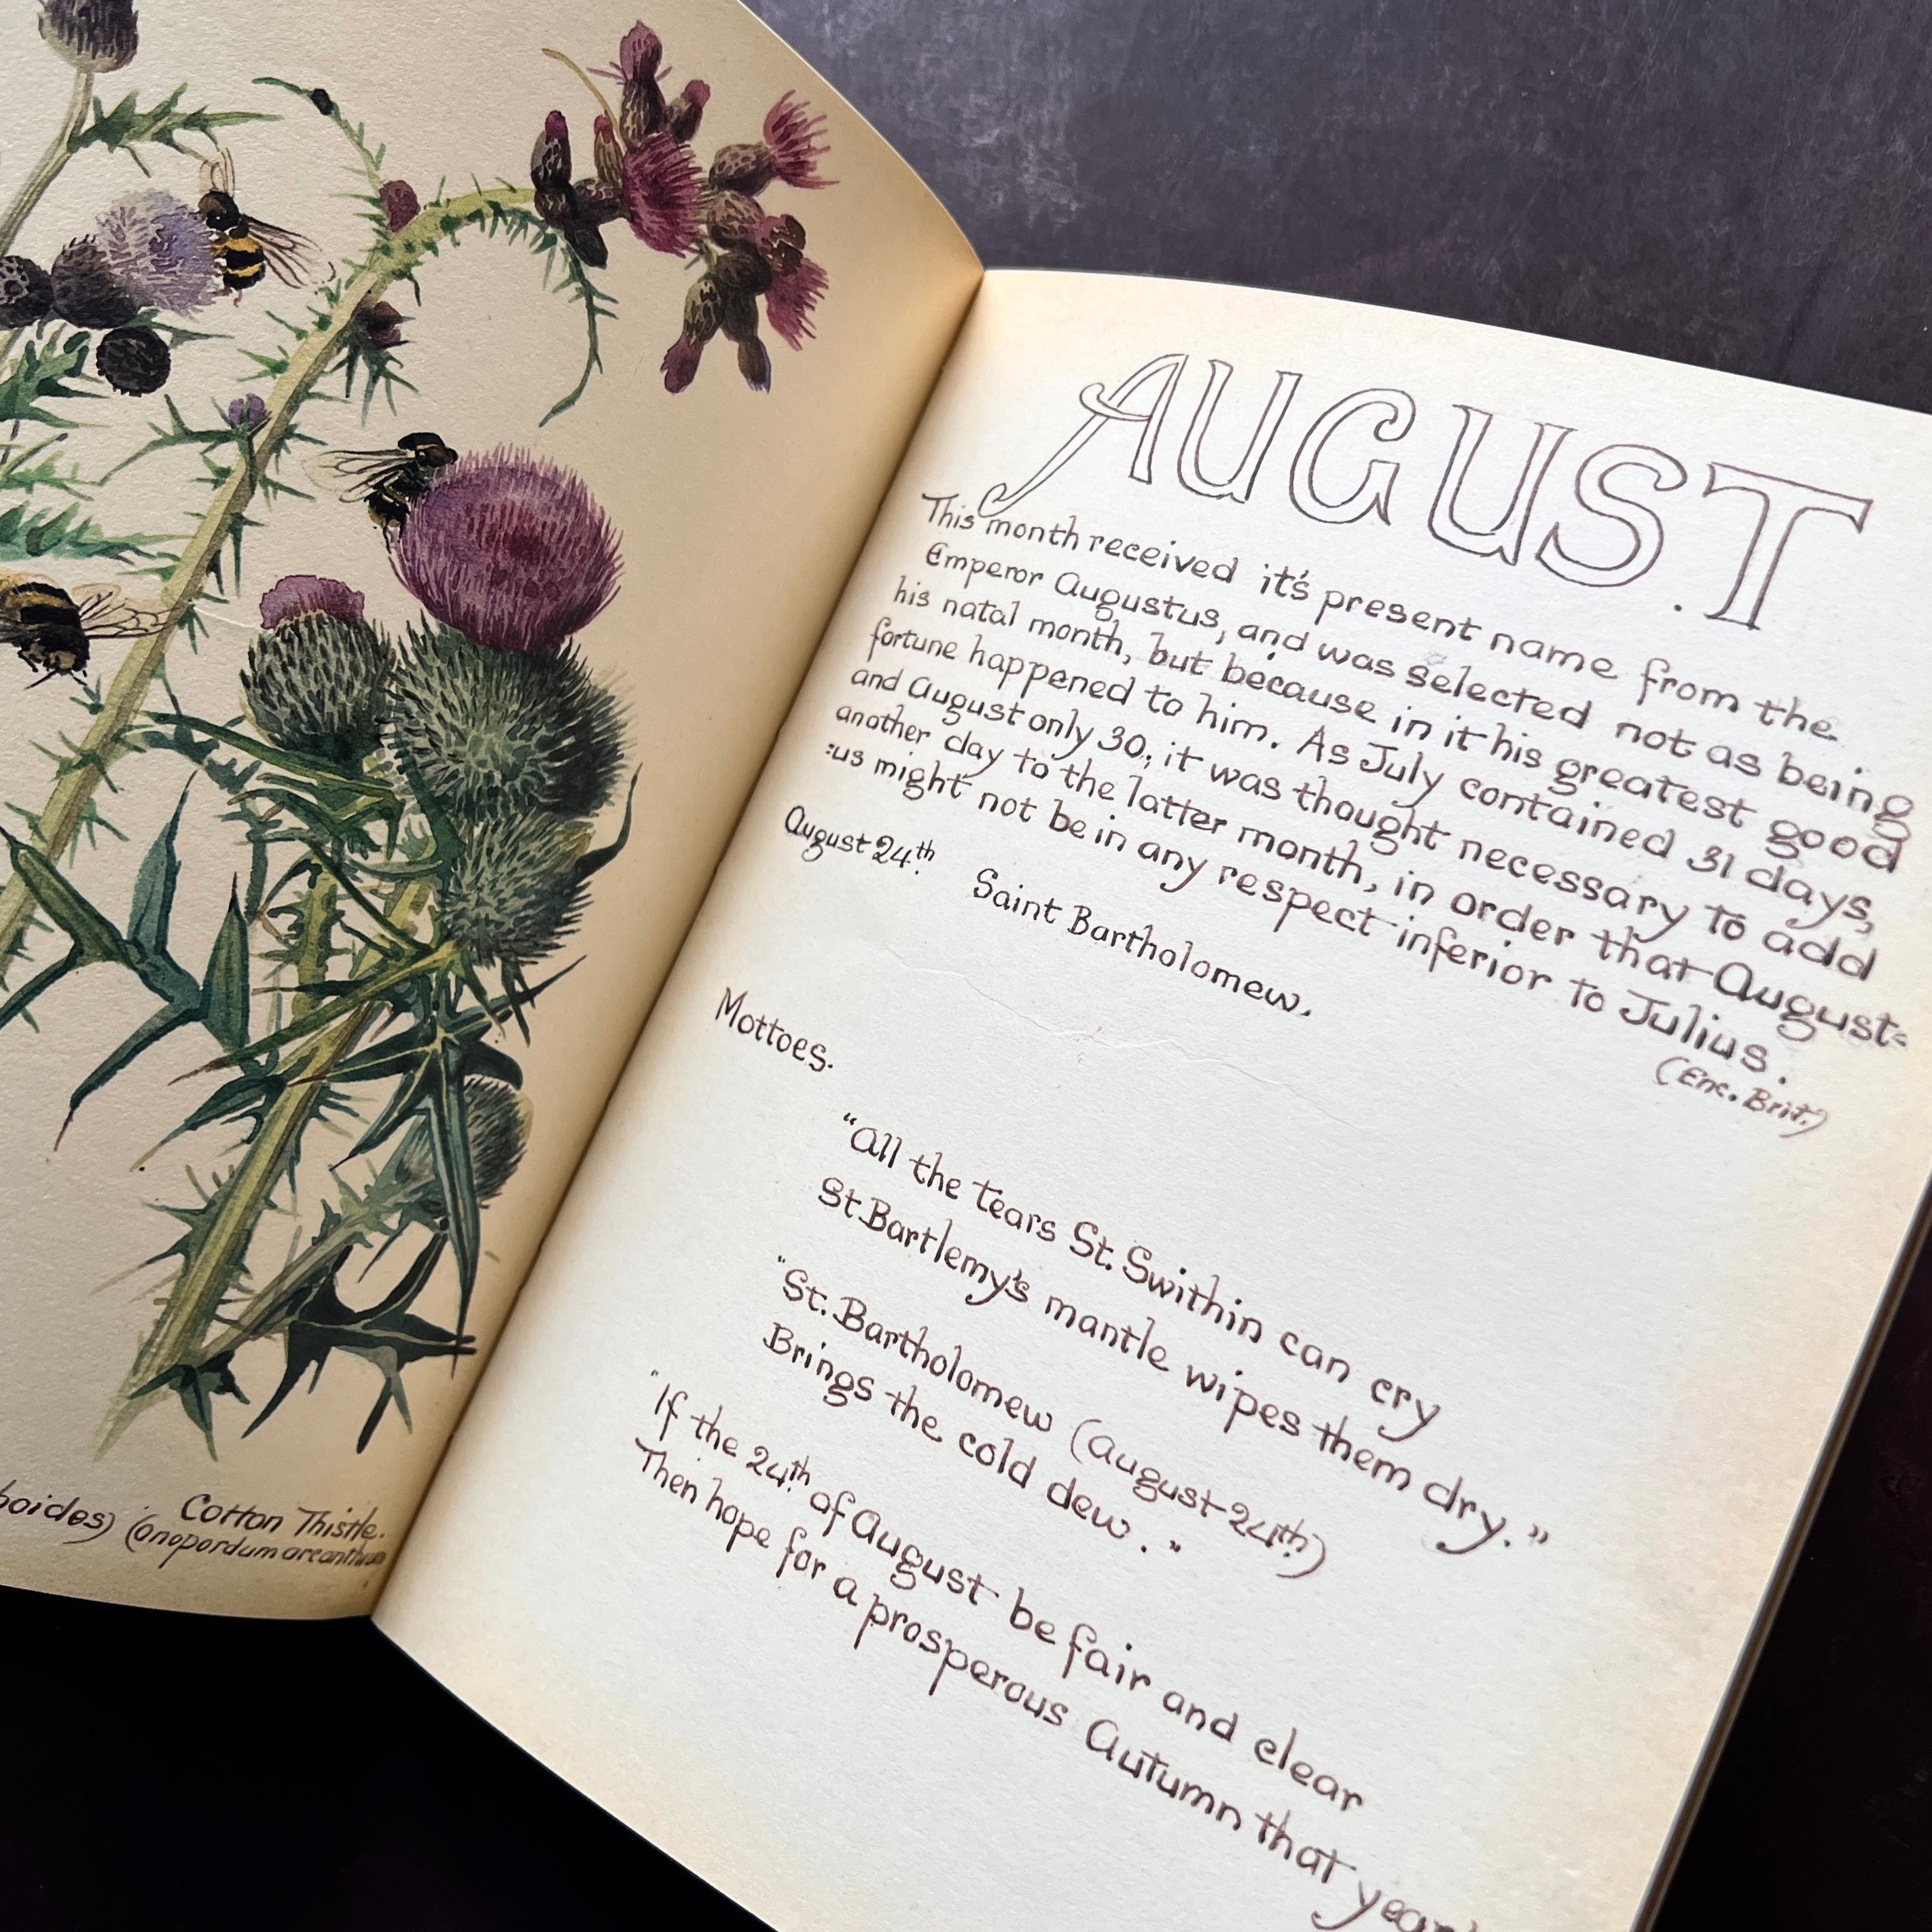 boides)
Cotton Thistle.
(Onopordum arcanthium
AUGUST.
This month received it's present name from the
Emperor Augustus, and was selected not as being
his natal month, but because in it his greatest good
fortune happened to him. As July contained 31 days,
and August only 30, it was thought necessary to add
another day to the latter month, in order that August=
=us might not be in any respect inferior to Julius.
(Enc. Brit.)
August 24th. Saint Bartholomew.
Mottoes.
"All the tears St. Swithin can cry
St. Bartlemy's mantle wipes them dry."
"St. Bartholomew (August 24th.)
Brings the cold dew."
"If the 24th. of August be fair and clear
Then hope for a prosperous Autumn that year"